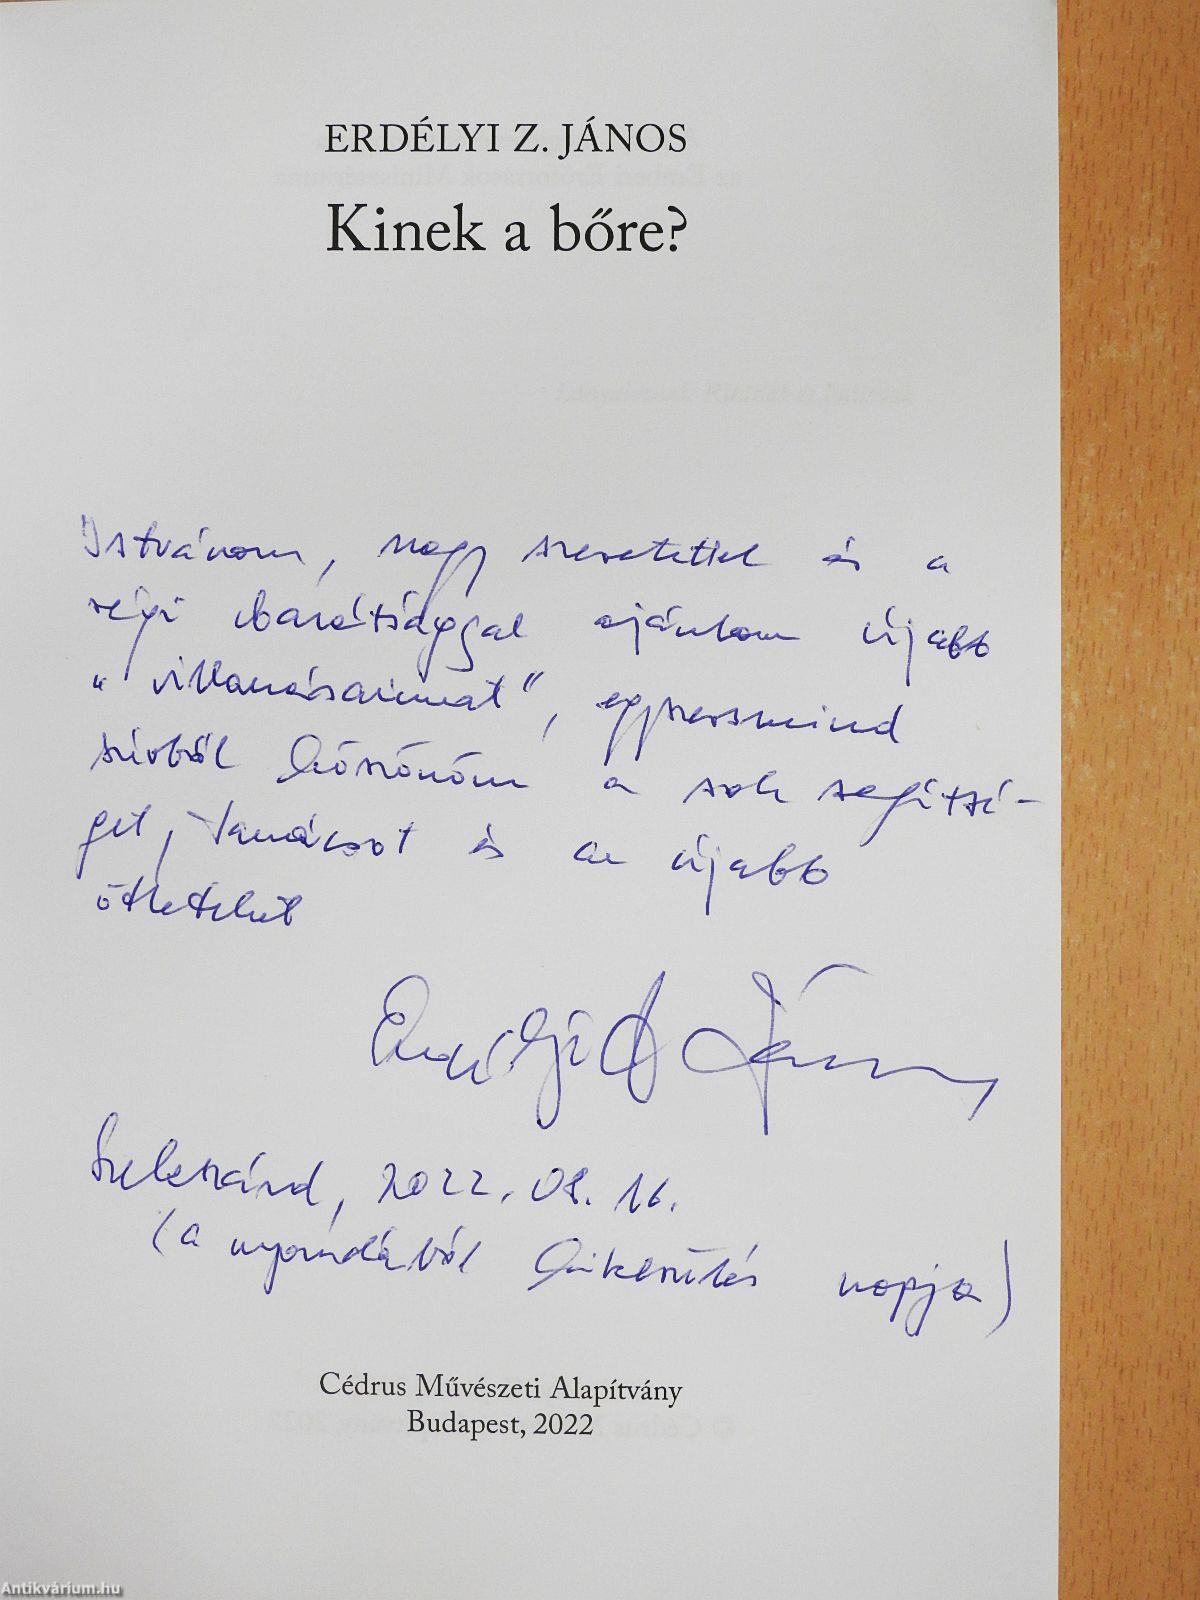 ERDÉLYI Z. JÁNOS
Kinek a bőre?
Istvánom, nagy szeretettel és a
régi barátsággal ajánlom újabb
"villanásaimat", egyszersmind
szívből köszönöm a sok segítsé-
get, tanácsot és az újabb
ötleteket
Erdélyi Z János
Szekszárd, 2022. 08. 16.
(a nyomdából kikerülés napja)
Cédrus Művészeti Alapítvány
Budapest, 2022
Antikvárium.hu